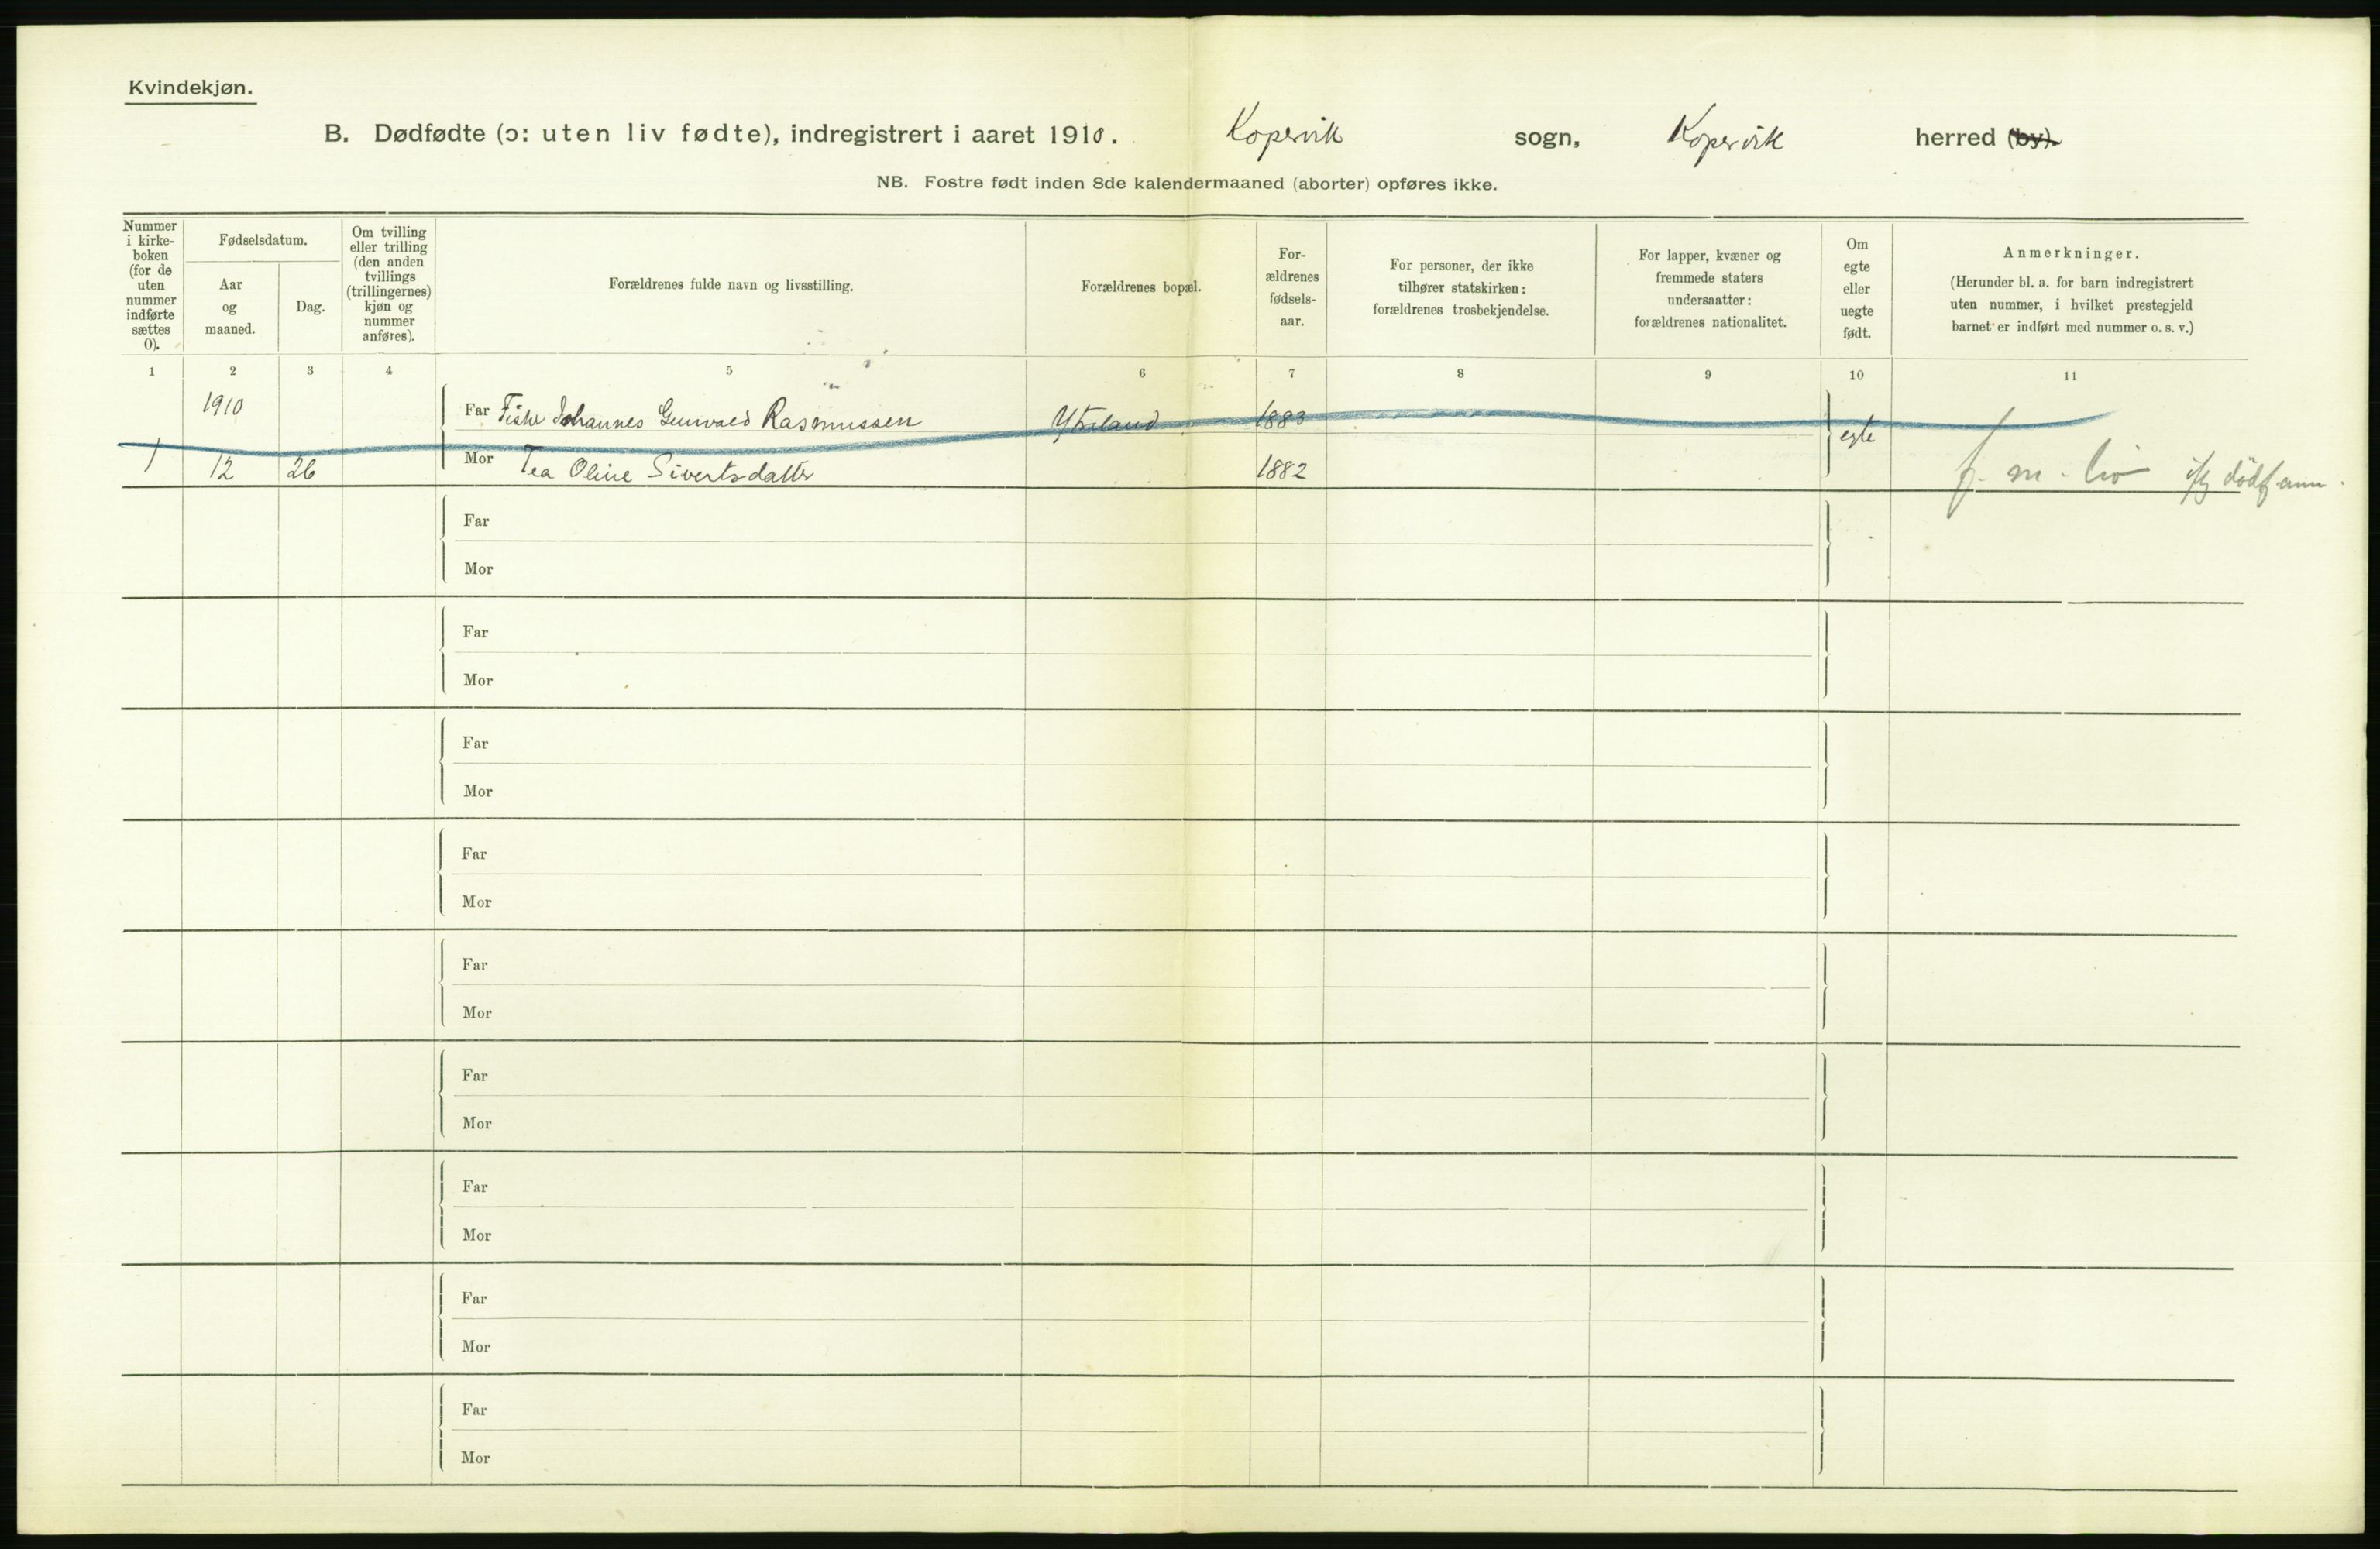 Kvindekjøn.
B. Dødfødte (ɔ: uten liv fødte), indregistrert i aaret 1910. Kopervik sogn, Kopervik herred (by).
NB. Fostre født inden 8de kalendermaaned (aborter) opføres ikke.
Nummer
i kirke-
boken
(for de
uten
nummer
indførte
sættes
0).
Fødselsdatum.
Aar
og
maaned.
Dag.
Om tvilling
eller trilling
(den anden
tvillings
(trillingernes)
kjøn og
nummer
anføres).
Forældrenes fulde navn og livsstilling.
Forældrenes bopæl.
For-
ældrenes
fødsels-
aar.
For personer, der ikke
tilhører statskirken:
forældrenes trosbekjendelse.
For lapper, kvæner og
fremmede staters
undersaatter:
forældrenes nationalitet.
Om
egte
eller
uegte
født.
Anmerkninger.
(Herunder bl. a. for barn indregistrert
uten nummer, i hvilket prestegjeld
barnet er indført med nummer o. s. v.)
1 2 3 4 5 6 7 8 9 10 11
1910 Far Fisker Johannes Gunvald Rasmussen Ytreland 1883 egte
1 12 26 Mor Tea Oline Sivertsdatter 1882 f. m. liv iflg dödfanm.
Far
Mor
Far
Mor
Far
Mor
Far
Mor
Far
Mor
Far
Mor
Far
Mor
Far
Mor
Far
Mor